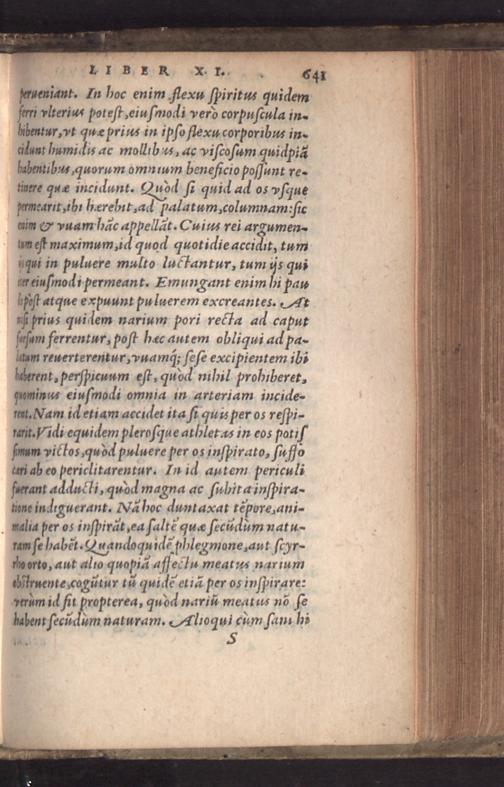 LIBER XI. 641
perueniant. In hoc enim flexu spiritus quidem
ferri vlterius potest, eiusmodi verò corpuscula in-
hibentur, vt quæ prius in ipso flexu corporibus in-
cidunt humidis ac mollibus, ac viscosum quidpiā
habentibus, quorum omnium beneficio possunt re-
tinere quæ incidunt. Quòd si quid ad os vsque
permearit, ibi hærebit, ad palatum, columnam: sic
enim & vuam hāc appellāt. Cuius rei argumen-
tum est maximum, id quod quotidie accidit, tum
ijs qui in puluere multo luctantur, tum ijs qui
iter eiusmodi permeant. Emungant enim hi pau
lò pòst atque expuunt puluerem excreantes. At
nisi prius quidem narium pori recta ad caput
sursum ferrentur, post hæc autem obliqui ad pa-
latum reuerterentur, vuamq; sese excipientem ibi
haberent, perspicuum est, quòd nihil prohiberet,
quominus eiusmodi omnia in arteriam incide-
rent. Nam id etiam accidet ita si quis per os respi-
rarit. Vidi equidem plerosque athletas in eos potis
simum victos, quòd puluere per os inspirato, suffo
cari ab eo periclitarentur. In id autem periculi
fuerant adducti, quòd magna ac subita inspira-
tione indiguerant. Nā hoc duntaxat tēpore, ani-
malia per os inspirāt, ea saltē quæ secūdùm natu-
ram se habēt. Quandoquidē phlegmone, aut scyr-
rho orto, aut alio quopiā affectu meatus narium
obstruente, cogūtur tū quidē etiā per os inspirare:
verùm id fit propterea, quòd nariū meatus nō se
habent secūdùm naturam. Alioqui cùm sani hi
S